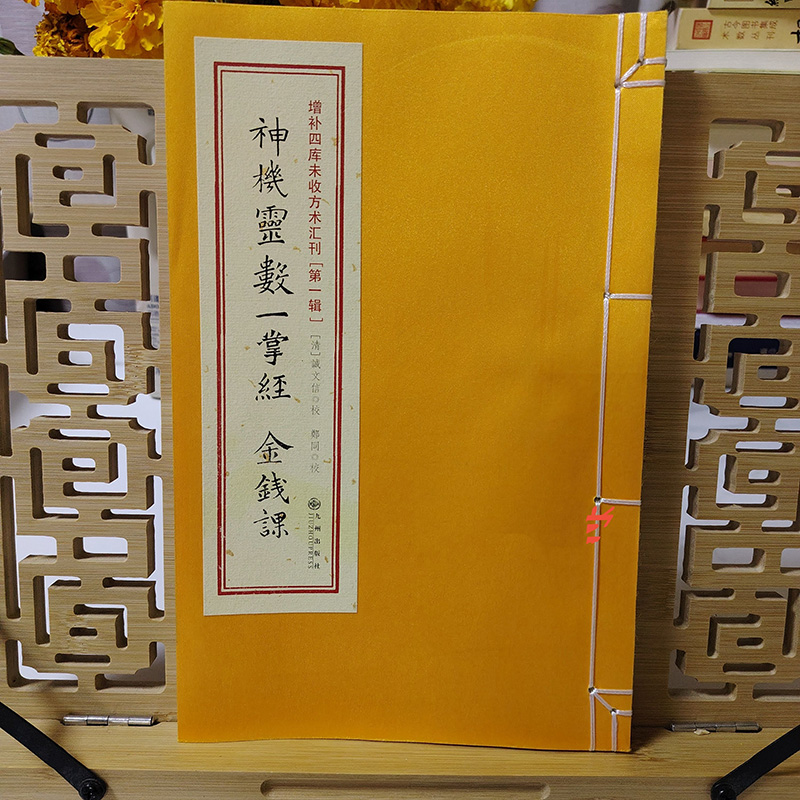 增补四库未收方术汇刊[第一辑]
神機靈數一掌經 金錢課
[清]誠文信◎校 鄭同◎校
九州出版社
JIUZHOUPRESS
古今图书集成
术数丛刊